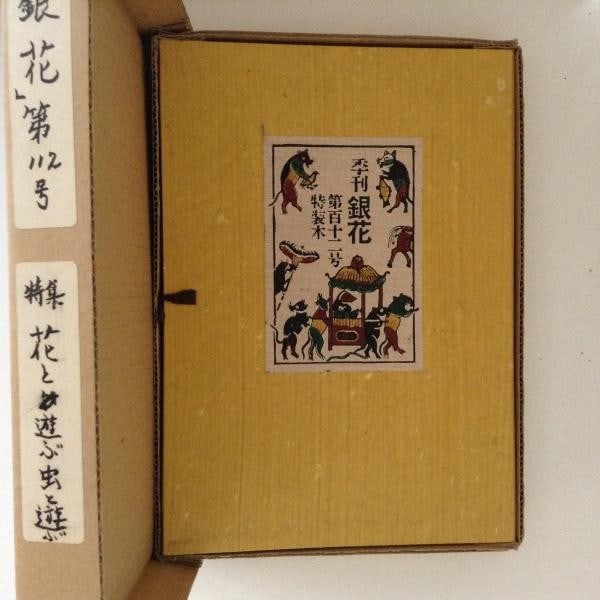 銀花」第112号
特集 花と遊ぶ虫と遊ぶ
季刊
銀花
第百十二号
特装本